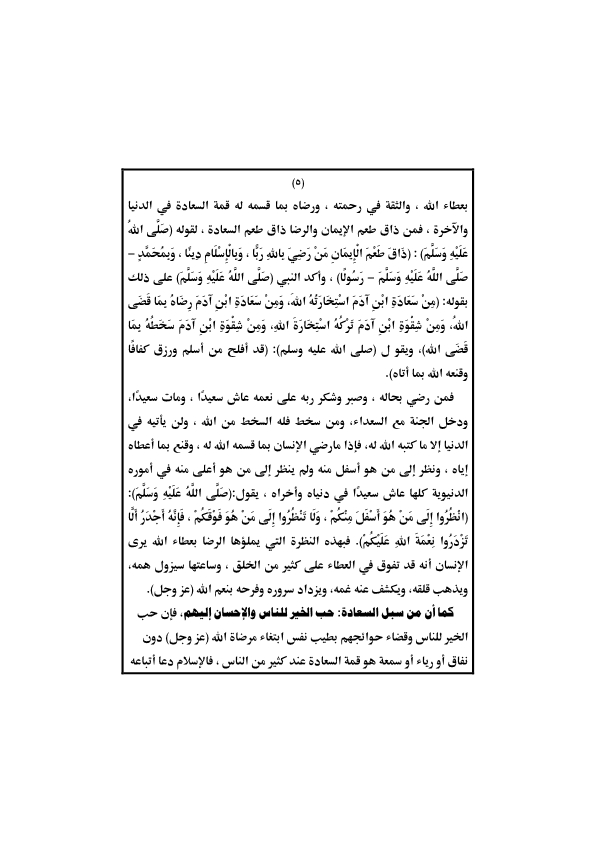 (٥)
بعطاء الله ، والثقة في رحمته ، ورضاه بما قسمه له قمة السعادة في الدنيا
والآخرة ، فمن ذاق طعم الإيمان والرضا ذاق طعم السعادة ، لقوله (صَلَّى اللهُ
عَلَيْهِ وَسَلَّمَ) : (ذَاقَ طَعْمَ الْإِيمَانِ مَنْ رَضِيَ بِاللهِ رَبًّا ، وَبِالْإِسْلَامِ دِينًا ، وَبِمُحَمَّدٍ –
صَلَّى اللَّهُ عَلَيْهِ وَسَلَّمَ – رَسُولًا) ، وأكد النبي (صَلَّى اللَّهُ عَلَيْهِ وَسَلَّمَ) على ذلك
بقوله: (مِنْ سَعَادَةِ ابْنِ آدَمَ اسْتِخَارَتُهُ اللهَ، وَمِنْ سَعَادَةِ ابْنِ آدَمَ رِضَاهُ بِمَا قَضَى
اللهُ، وَمِنْ شِقْوَةِ ابْنِ آدَمَ تَرْكُهُ اسْتِخَارَةَ اللهِ، وَمِنْ شِقْوَةِ ابْنِ آدَمَ سَخَطُهُ بِمَا
قَضَى الله)، ويقو ل (صلى الله عليه وسلم): (قد أفلح من أسلم ورزق كفافًا
وقنعه الله بما أتاه).
فمن رضي بحاله ، وصبر وشكر ربه على نعمه عاش سعيدًا ، ومات سعيدًا،
ودخل الجنة مع السعداء، ومن سخط فله السخط من الله ، ولن يأتيه في
الدنيا إلا ما كتبه الله له، فإذا مارضي الإنسان بما قسمه الله له ، وقنع بما أعطاه
إياه ، ونظر إلى من هو أسفل منه ولم ينظر إلى من هو أعلى منه في أموره
الدنيوية كلها عاش سعيدًا في دنياه وأخراه ، يقول:(صَلَّى اللَّهُ عَلَيْهِ وَسَلَّمَ):
(انْظُرُوا إِلَى مَنْ هُوَ أَسْفَلَ مِنْكُمْ ، وَلَا تَنْظُرُوا إِلَى مَنْ هُوَ فَوْقَكُمْ ، فَإِنَّهُ أَجْدَرُ أَلَّا
تَزْدَرُوا نِعْمَةَ اللهِ عَلَيْكُمْ). فبهذه النظرة التي يملؤها الرضا بعطاء الله يرى
الإنسان أنه قد تفوق في العطاء على كثير من الخلق ، وساعتها سيزول همه،
ويذهب قلقه، ويكشف عنه غمه، ويزداد سروره وفرحه بنعم الله (عز وجل).
كما أن من سبل السعادة: حب الخير للناس والإحسان إليهم، فإن حب
الخير للناس وقضاء حوائجهم بطيب نفس ابتغاء مرضاة الله (عز وجل) دون
نفاق أو رياء أو سمعة هو قمة السعادة عند كثير من الناس ، فالإسلام دعا أتباعه